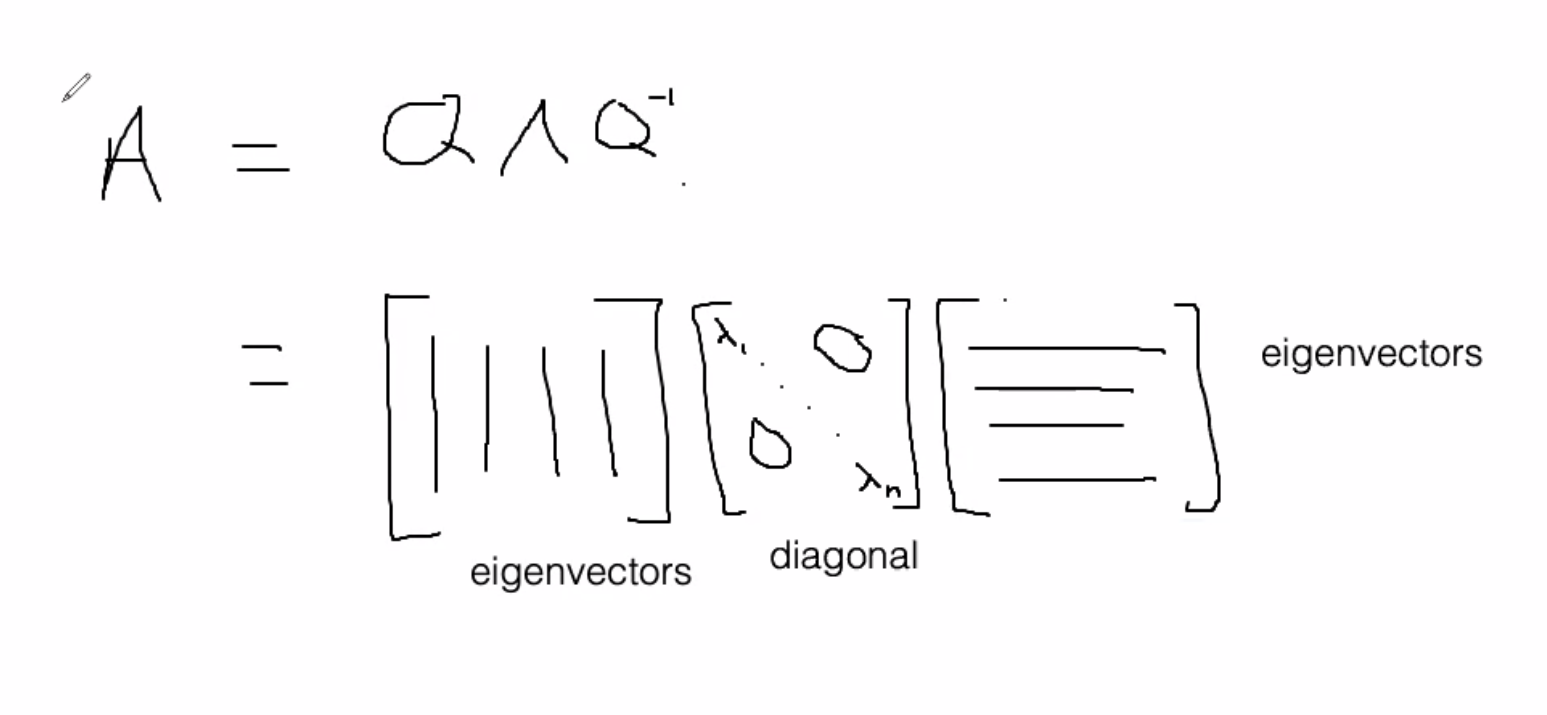 A = Q Λ Q⁻¹
= [ ] [ λ₁ 0 0 λₙ ] [ ] eigenvectors
eigenvectors diagonal